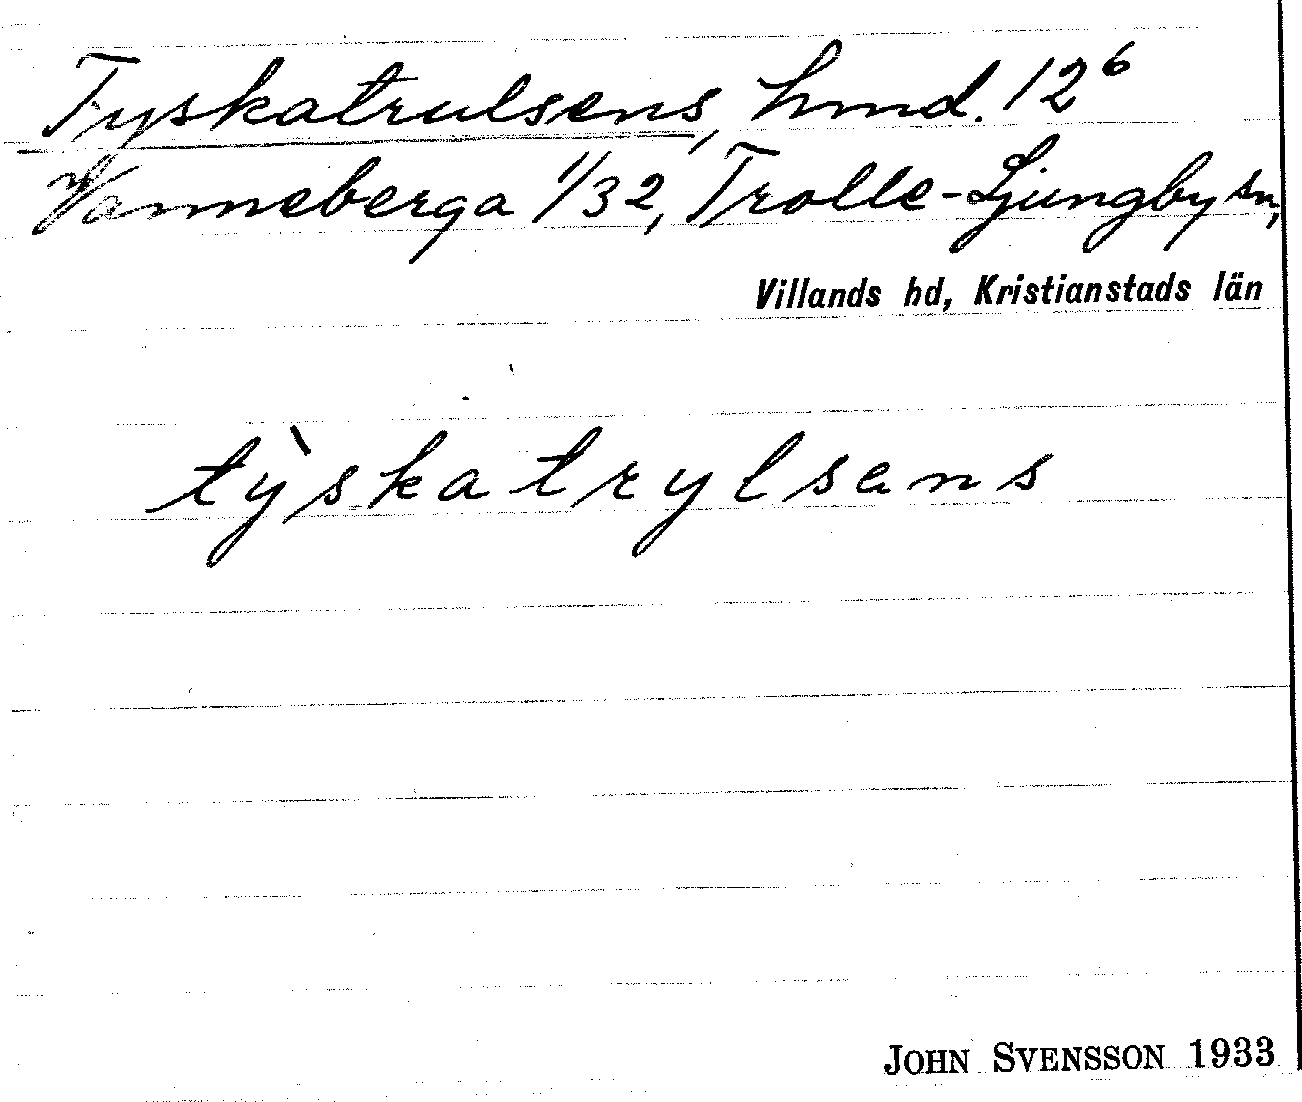 Tyskatrulsens, hmd. 12⁶
Vanneberga 1/32, Trolle-Ljungby sn,
Villands hd, Kristianstads län
tỳskatrylsens
JOHN SVENSSON 1933